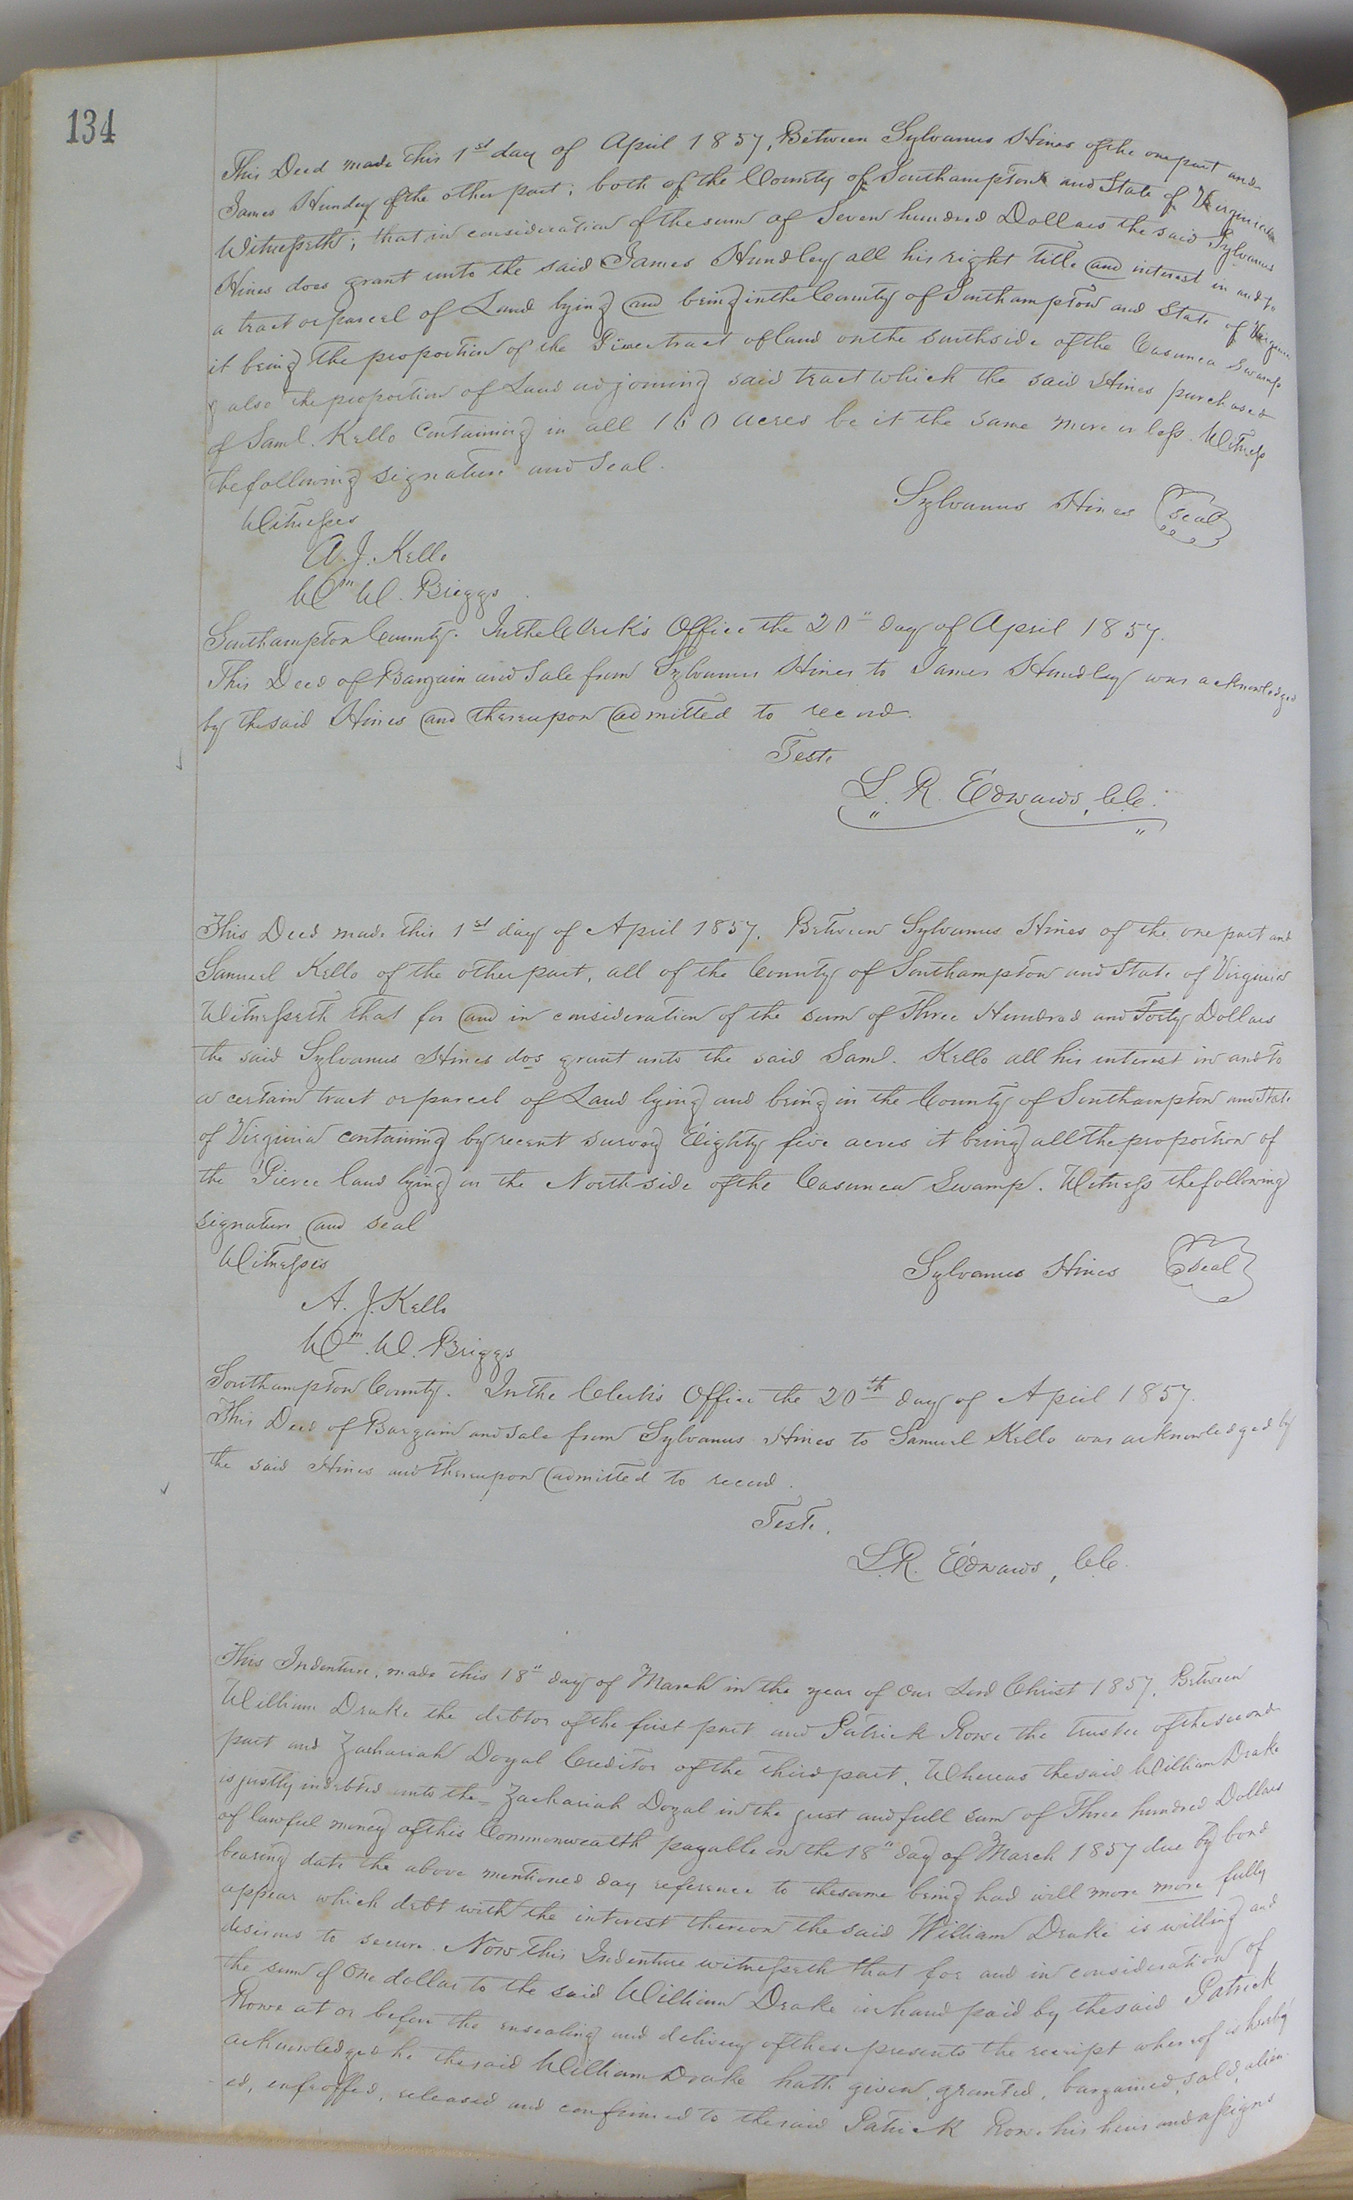 134
This Deed made this 1st day of April 1857, Between Sylvanus Hines of the one part and
James Hundley of the other part; both of the County of Southampton and State of Virginia
Witnesseth; that in consideration of the sum of Seven hundred Dollars the said Sylvanus
Hines does grant unto the said James Hundley all his right title and interest in and to
a tract or parcel of Land lying and being in the County of Southampton and State of Virginia
it being the proportion of the Pierce tract of land on the south side of the Swamp
& also the proportion of Land adjoining said tract which the said Hines purchased
of Saml. Kello Containing in all 160 acres be it the same more or less. Witness
the following signature and seal.
Sylvanus Hines Seal
Witnesses
A. J. Kello
Wm W. Briggs
Southampton County. In the Clerk's Office the 20" day of April 1857.
This Deed of Bargain and Sale from Sylvanus Hines to James Hundley was acknowledged
by the said Hines and thereupon admitted to record.
Teste
L. R. Edwards, C.C.
This Deed made this 1st day of April 1857. Between Sylvanus Hines of the one part and
Samuel Kello of the other part, all of the County of Southampton and State of Virginia
Witnesseth that for and in consideration of the sum of Three Hundred and Forty Dollars
the said Sylvanus Hines dos grant unto the said Saml. Kello all his interest in and to
a certain tract or parcel of Land lying and being in the County of Southampton and State
of Virginia containing by recent survey Eighty five acres it being all the proportion of
the Pierce land lying on the North side of the Swamp. Witness the following
signature and seal
Witnesses
Sylvanus Hines Seal
A. J. Kello
Wm. W. Briggs
Southampton County. In the Clerk's Office the 20th day of April 1857.
This Deed of Bargain and Sale from Sylvanus Hines to Samuel Kello was acknowledged by
the said Hines and thereupon admitted to record.
Teste.
L. R. Edwards, C.C.
This Indenture, made this 18" day of March in the year of Our Lord Christ 1857. Between
William Drake the debtor of the first part and Patrick Rowe the trustee of the second
part and Zachariah Doyal Creditor of the third part. Whereas the said William Drake
is justly indebted unto the Zachariah Doyal in the just and full sum of Three hundred Dollars
of lawful money of this Commonwealth payable on the 18" day of March 1857 due by bond
bearing date the above mentioned day reference to the same being had will more more fully
appear which debt with the interest thereon the said William Drake is willing and
desirous to secure. Now this Indenture witnesseth that for and in consideration of
the sum of One dollar to the said William Drake in hand paid by the said Patrick
Rowe at or before the ensealing and delivery of these presents the receipt whereof is hereby
acknowledged he the said William Drake hath given, granted, bargained, sold, alien-
ed, enfeoffed, released and confirmed to the said Patrick Rowe his heirs and assigns